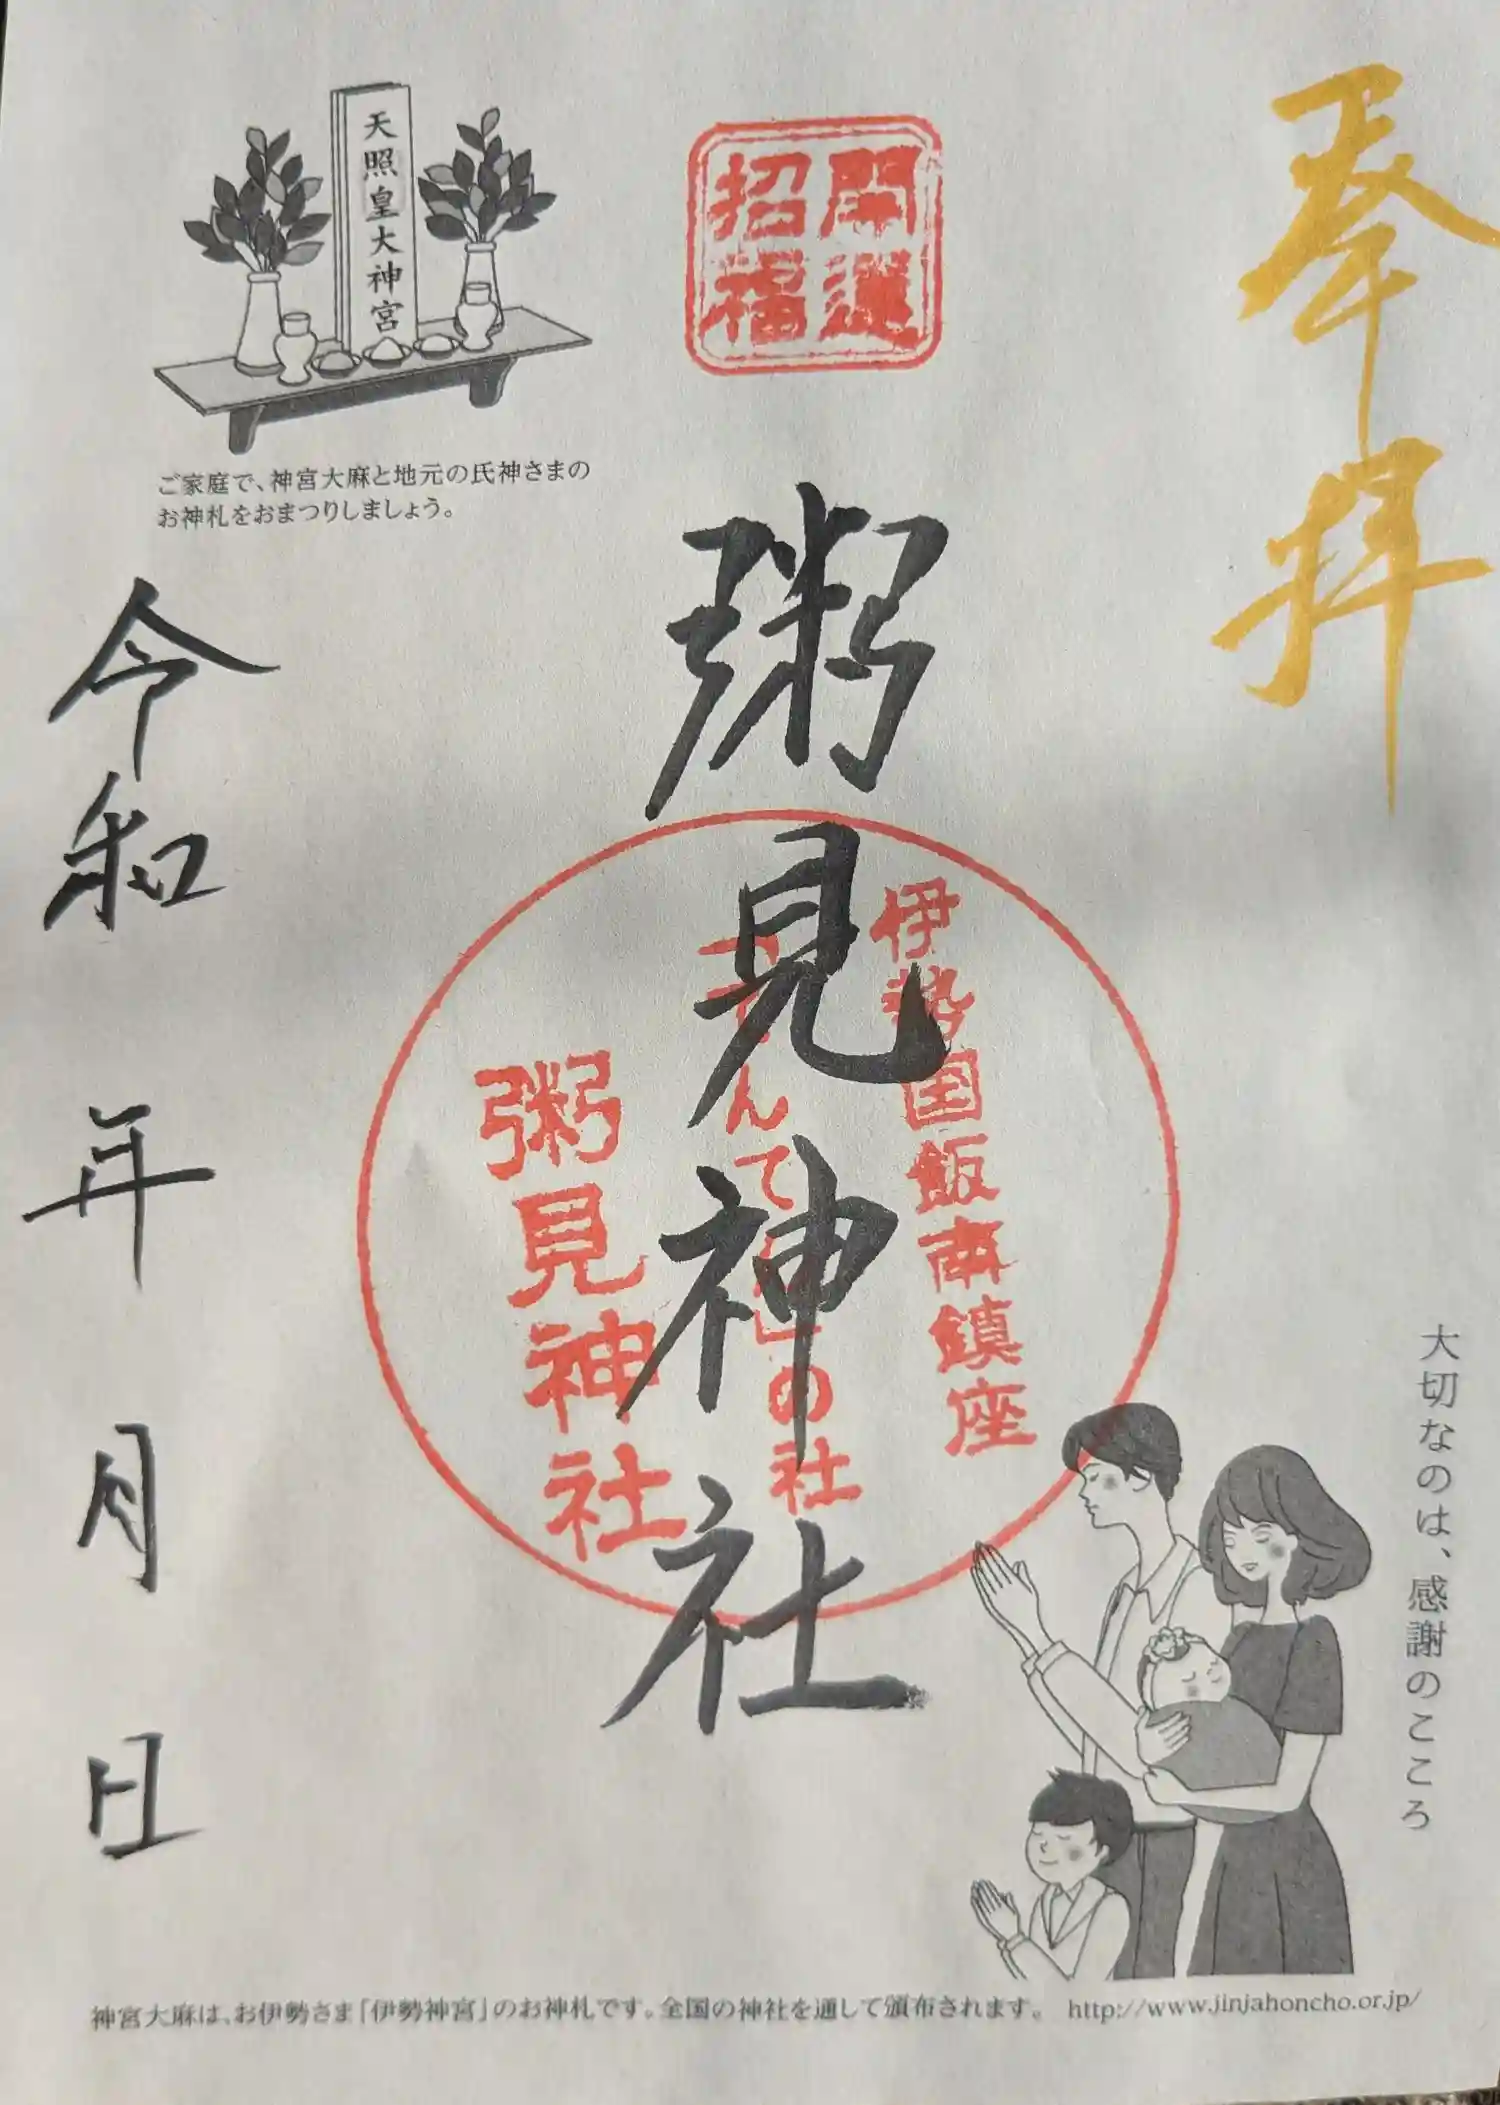 奉拝
開運
招福
天照皇大神宮
ご家庭で、神宮大麻と地元の氏神さまの
お神札をおまつりしましょう。
粥見神社
伊勢国飯南鎮座
の社
粥見神社
令和 年 月 日
大切なのは、感謝のこころ
神宮大麻は、お伊勢さま「伊勢神宮」のお神札です。全国の神社を通して頒布されます。 http://www.jinjahoncho.or.jp/